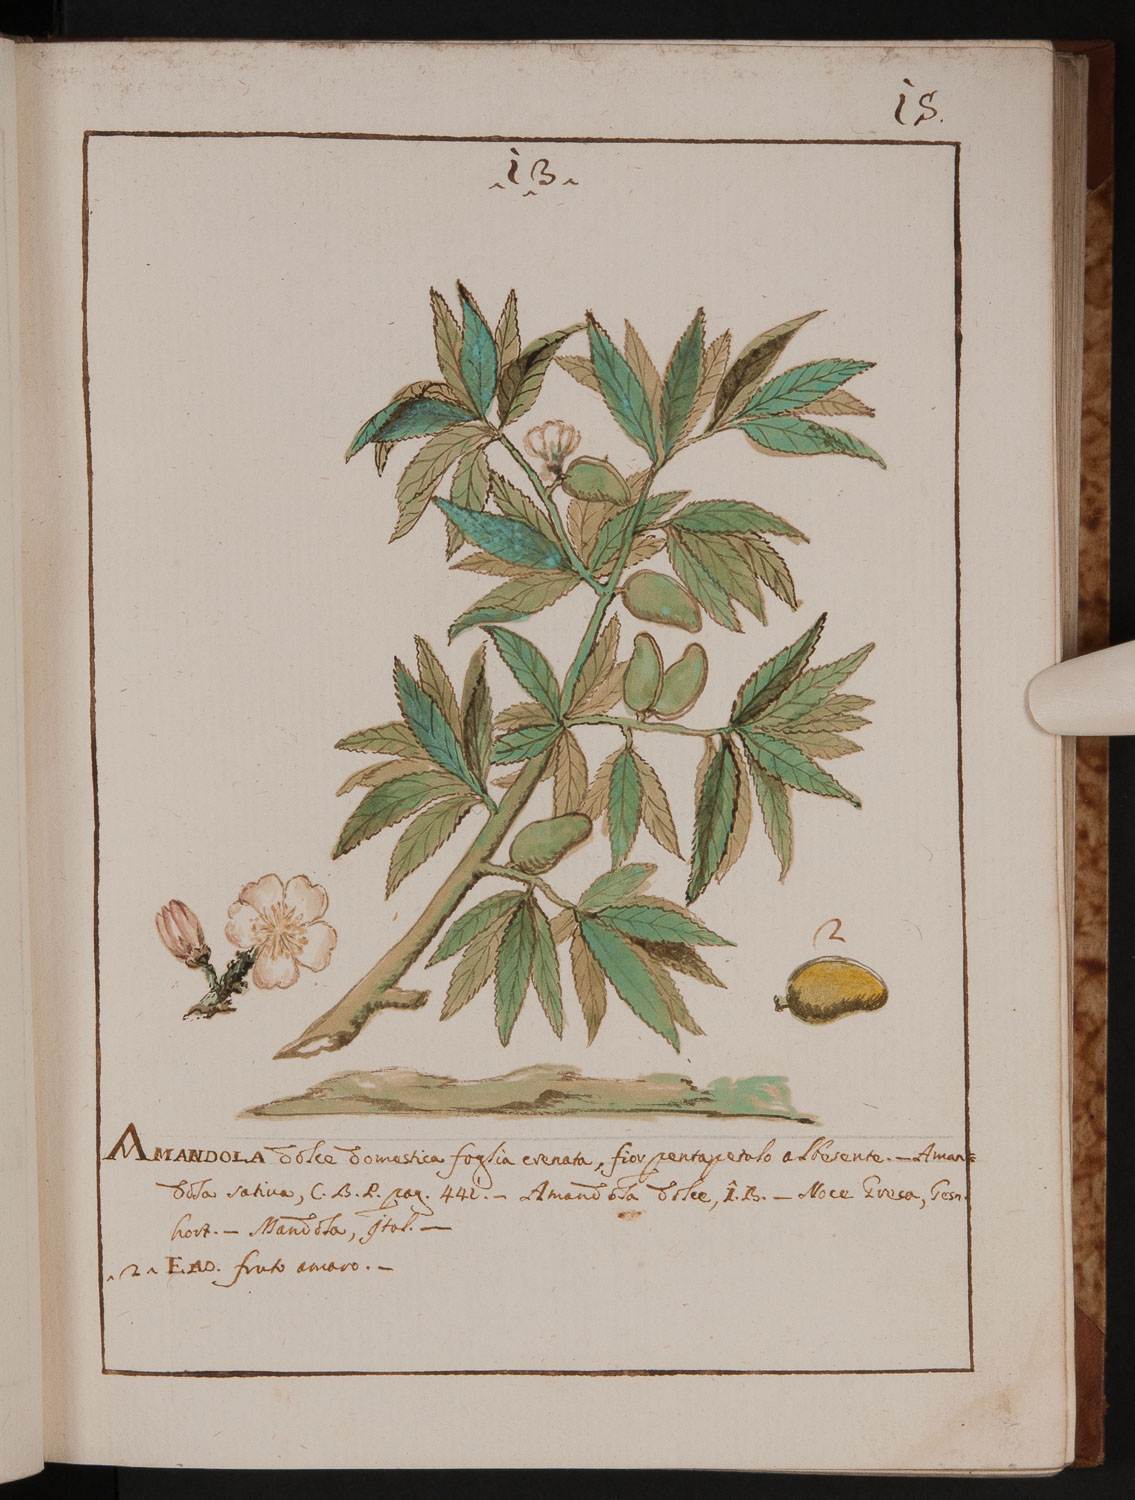 15.
13
2
AMANDOLA dolce domestica foglia crenata, fior pentapetalo albesente. - Aman=
dola sativa, C. B. P. pag. 441. - Amandola dolce, I. B. - Noce Greca, Gesn.
hort. - Mandola, Ital. -
2 EAD. fruto amaro. -